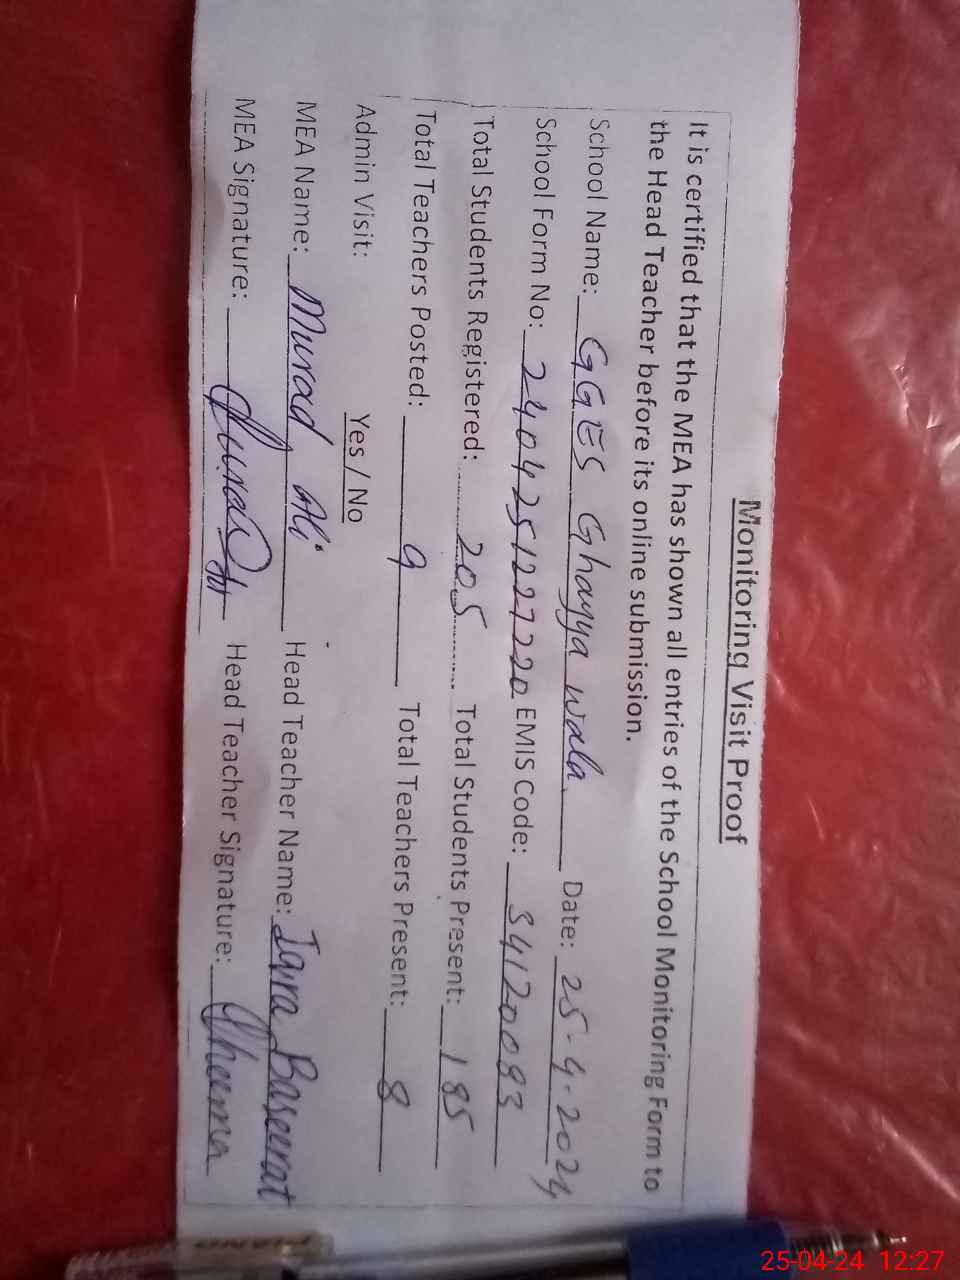 Monitoring Visit Proof
It is certified that the MEA has shown all entries of the School Monitoring Form to
the Head Teacher before its online submission.
School Name: GGES Ghayya wala Date: 25-4-2024
School Form No: 2404251227220 EMIS Code: 34120083
Total Students Registered: 205 Total Students Present: 185
Total Teachers Posted: 9 Total Teachers Present: 8
Admin Visit: Yes / No
MEA Name: Murad Ali Head Teacher Name: Iqra Baseerat
MEA Signature: Head Teacher Signature: Cheema
PIANO
25-04-24 12:27